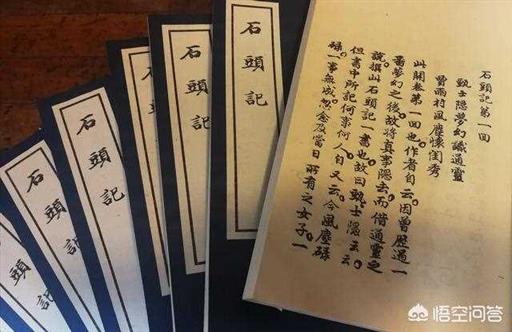 石頭記第一回
甄士隱夢幻識通靈
賈雨村風塵懷閨秀
此開卷第一回也作者自云因曾歷過一
番夢幻之後故將真事隱去而借通靈之
說撰此石頭記一書也故曰甄士隱云云
但書中所記何事何人自又云今風塵碌
碌一事無成忽念及當日所有之女子一
石頭記
石頭記
石頭記
石頭記
石頭記
石頭記
悟空问答